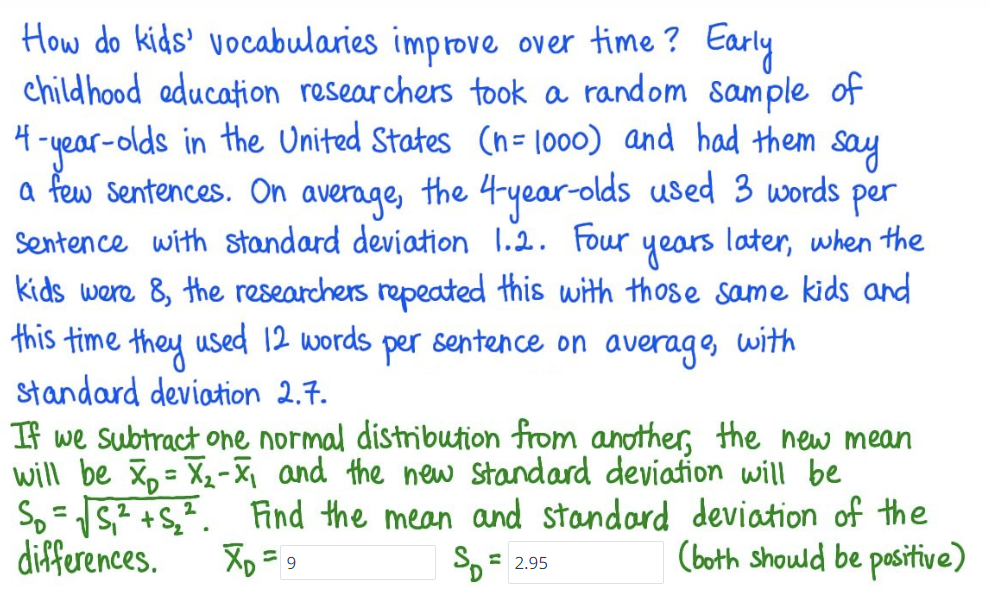 How do kids' vocabularies improve over time? Early
childhood education researchers took a random sample of
4-year-olds in the United States (n=1000) and had them say
a few sentences. On average, the 4-year-olds used 3 words per
sentence with standard deviation 1.2. Four years later, when the
kids were 8, the researchers repeated this with those same kids and
this time they used 12 words per sentence on average, with
standard deviation 2.7.
If we subtract one normal distribution from another, the new mean
will be x̄_D = x̄₂-x̄₁ and the new standard deviation will be
S_D = √(S₁² + S₂²). Find the mean and standard deviation of the
differences. x̄_D = 9 S_D = 2.95 (both should be positive)